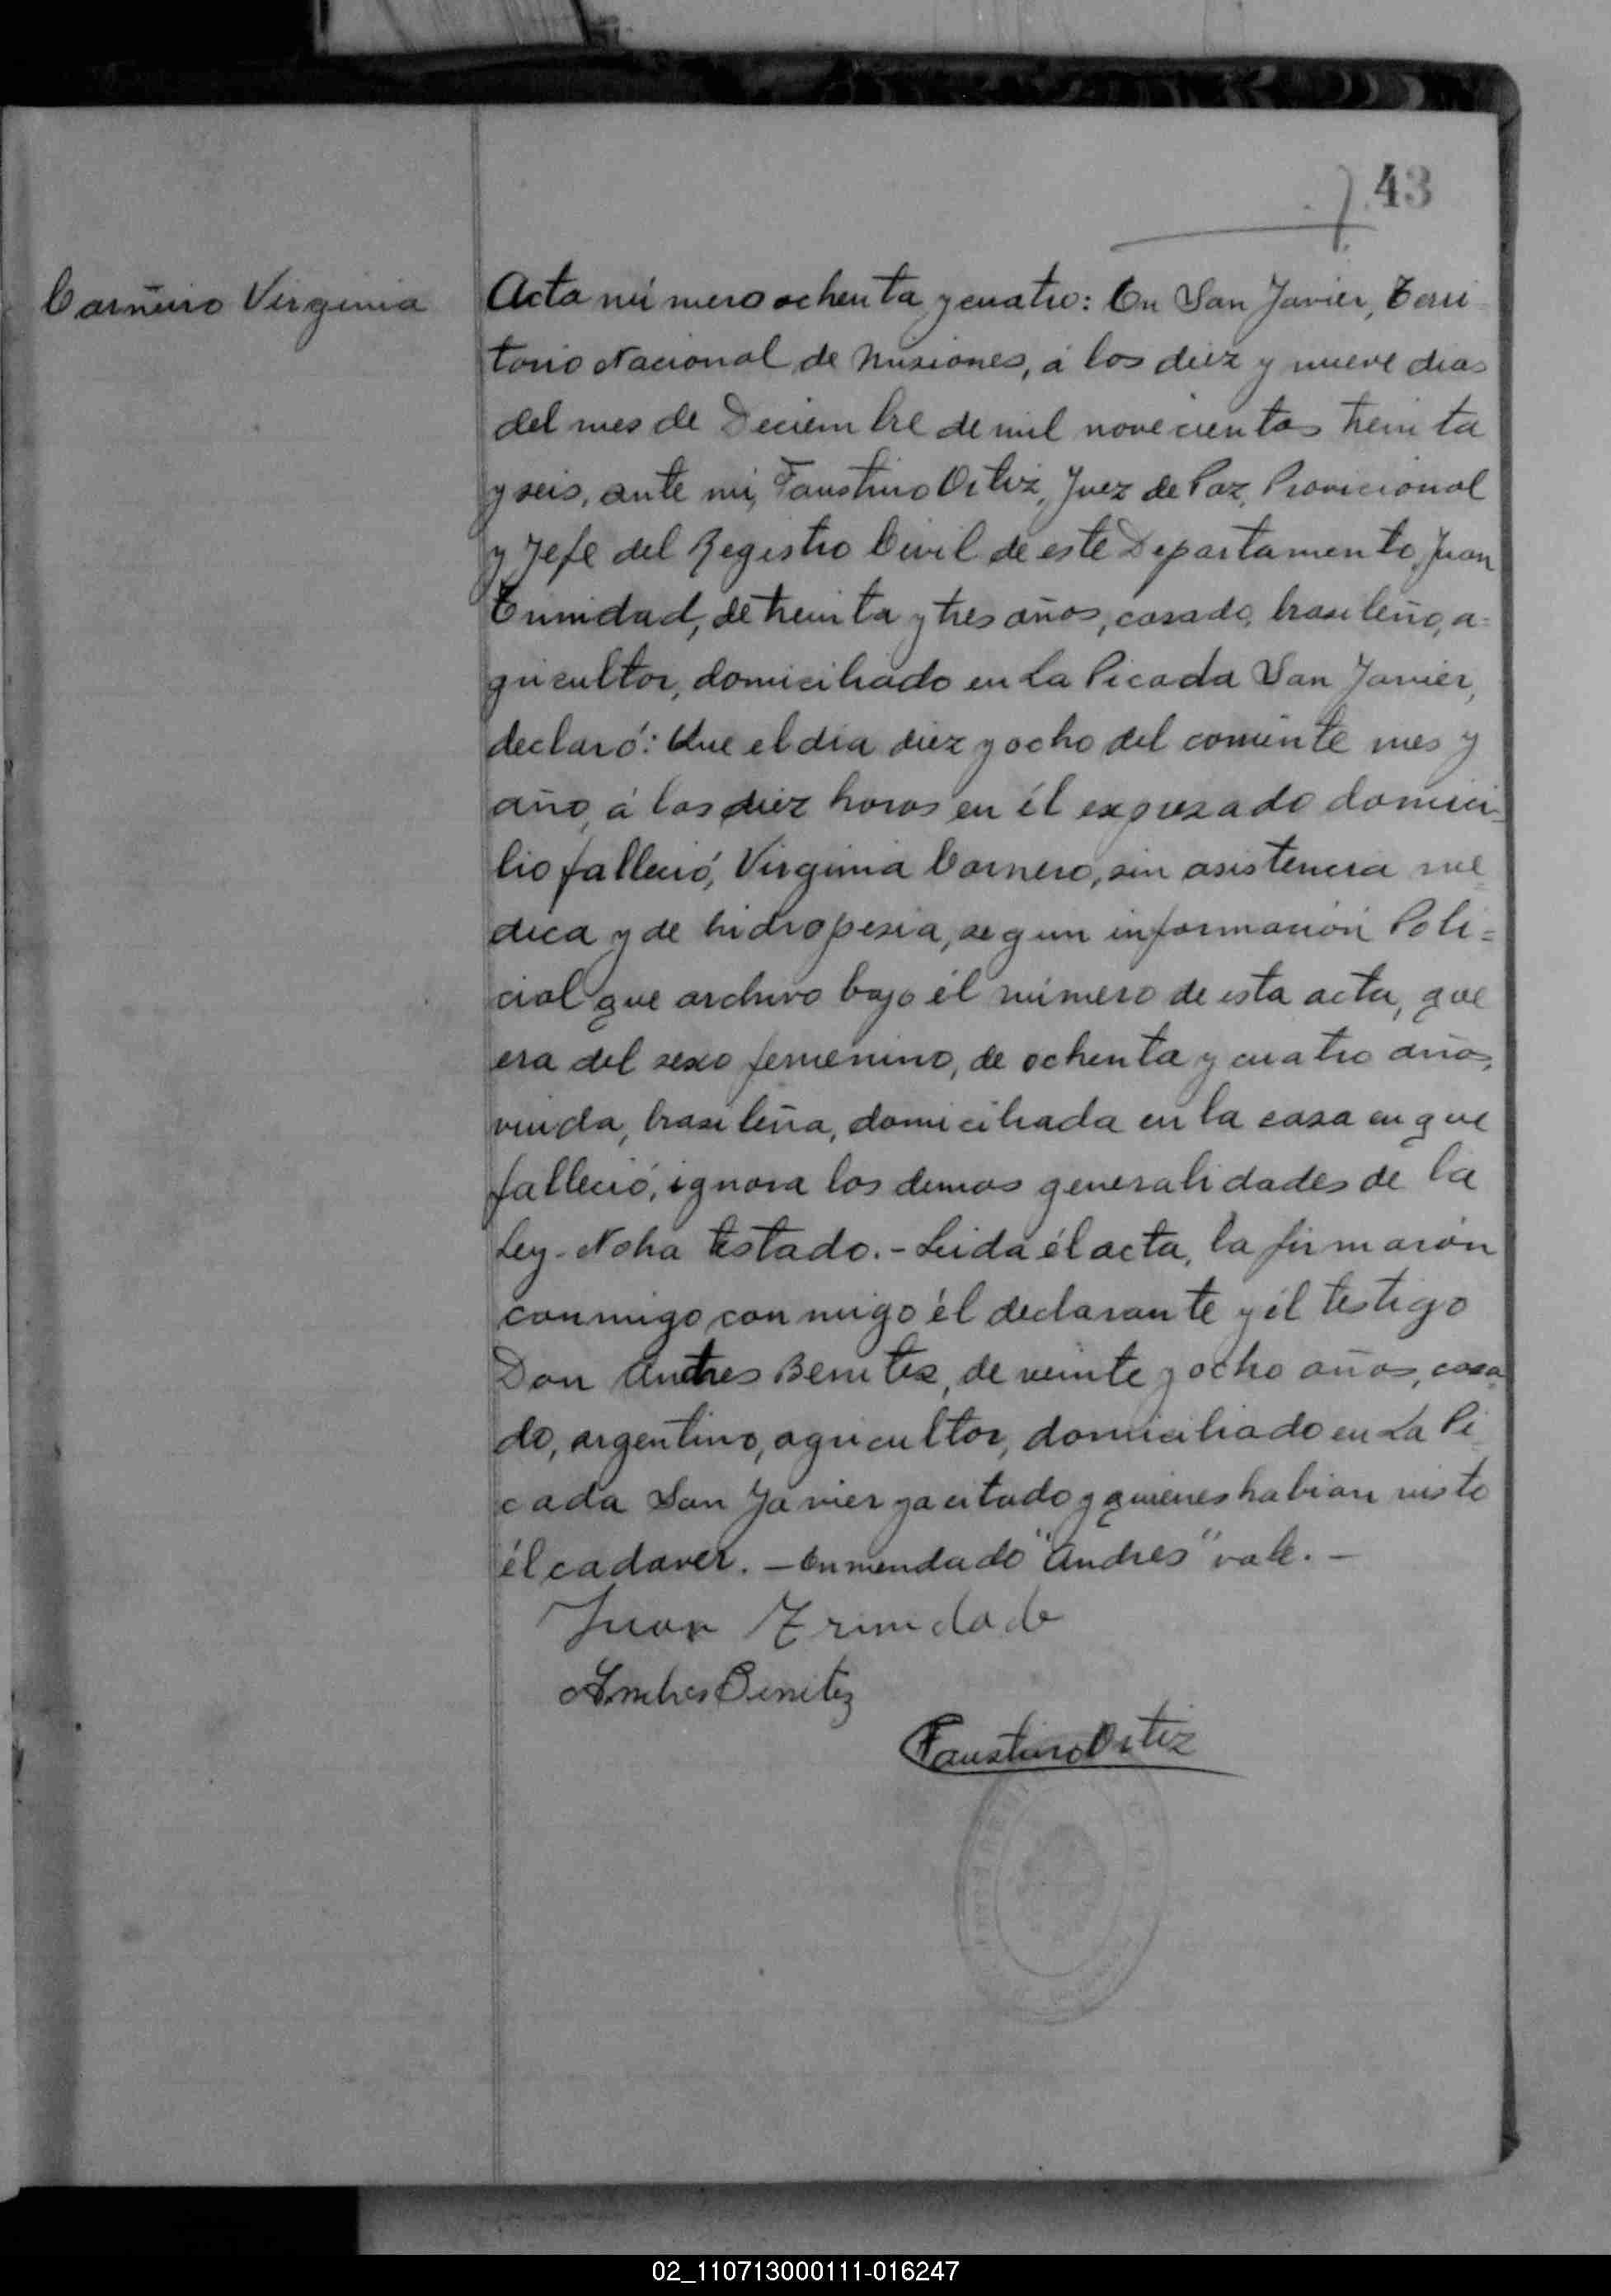 43
Carneiro Virginia
Acta número ochenta y cuatro: En San Javier, Terri
torio Nacional de Misiones, á los diez y nueve dias
del mes de Deciembre de mil novecientos treinta
y seis, ante mi, Faustino Ortiz, Juez de Paz, Provicional
y Jefe del Registro Civil de este Departamento, Juan
Trinidad, de treinta y tres años, casado, brasileño, a=
gricultor, domiciliado en La Picada San Javier,
declaró: Que el dia diez y ocho del corriente mes y
año, á las diez horas en él expresado domici=
lio falleció, Virginia Carnero, sin asistencia me=
dica y de hidropesia, segun información Poli=
cial que archivo bajo él número de esta acta, que
era del sexo femenino, de ochenta y cuatro años,
viuda, brasileña, domiciliada en la casa en que
falleció, ignora las demas generalidades de la
Ley. No ha testado. - Leida él acta, la firmaron
conmigo, con migo él declarante y él testigo
Don Andres Benitez, de veinte y ocho años, casa=
do, argentino, agricultor, domiciliado en La Pi=
cada San Javier ya citado y quienes habian visto
él cadaver. - Enmendado "Andres" vale. -
Juan Trinidade
Andres Benitez
Faustino Ortiz
02_110713000111-016247